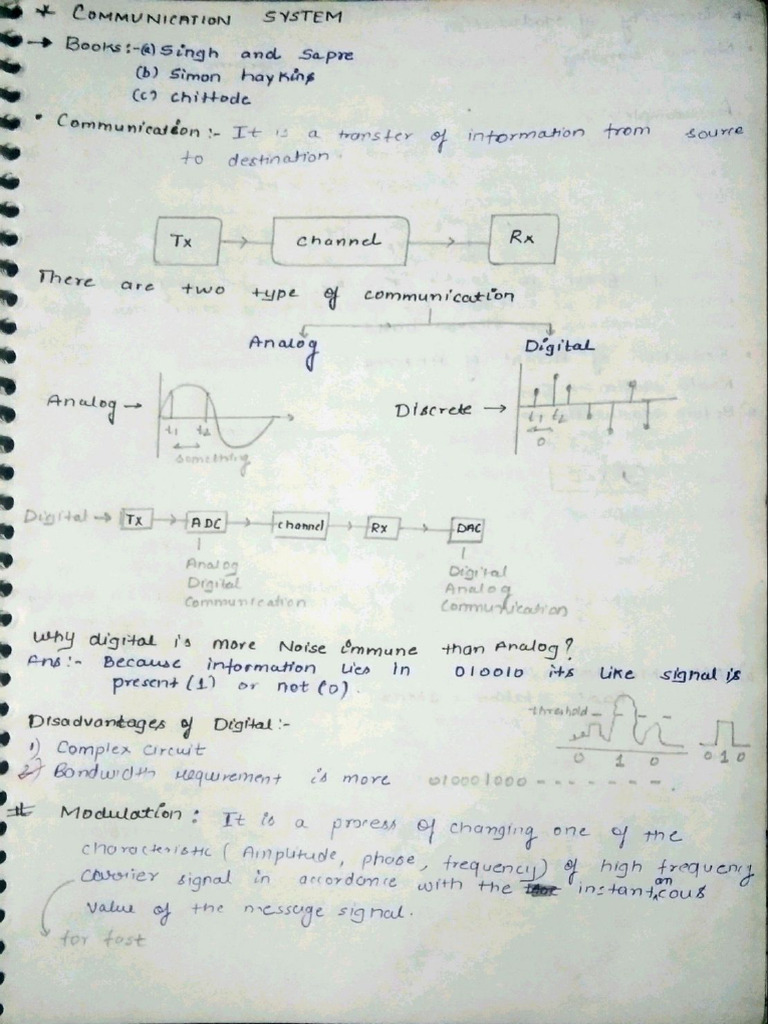 * COMMUNICATION SYSTEM
→ Books:-(a) Singh and Sapre
(b) Simon haykins
(c) Chittode
• Communication :- It is a transfer of information from source
to destination.
Tx → channel → Rx
There are two type of communication
Analog Digital
Analog → t1 t2 Discrete → t1 t2
something 0
Digital → Tx → ADC → channel → Rx → DAC
Analog Digital
Digital Analog
Communication Communication
Why digital is more Noise immune than Analog?
Ans:- Because information lies in 010010 its like signal is
present (1) or not (0).
Disadvantages of Digital:- threshold
1) Complex circuit 0 1 0 0 1 0
2) Bandwidth requirement is more 010001000 - - - - - - - .
# Modulation: It is a process of changing one of the
characteristic (Amplitude, phase, frequency) of high frequency
carrier signal in accordance with the instantaneous
value of the message signal.
for fast